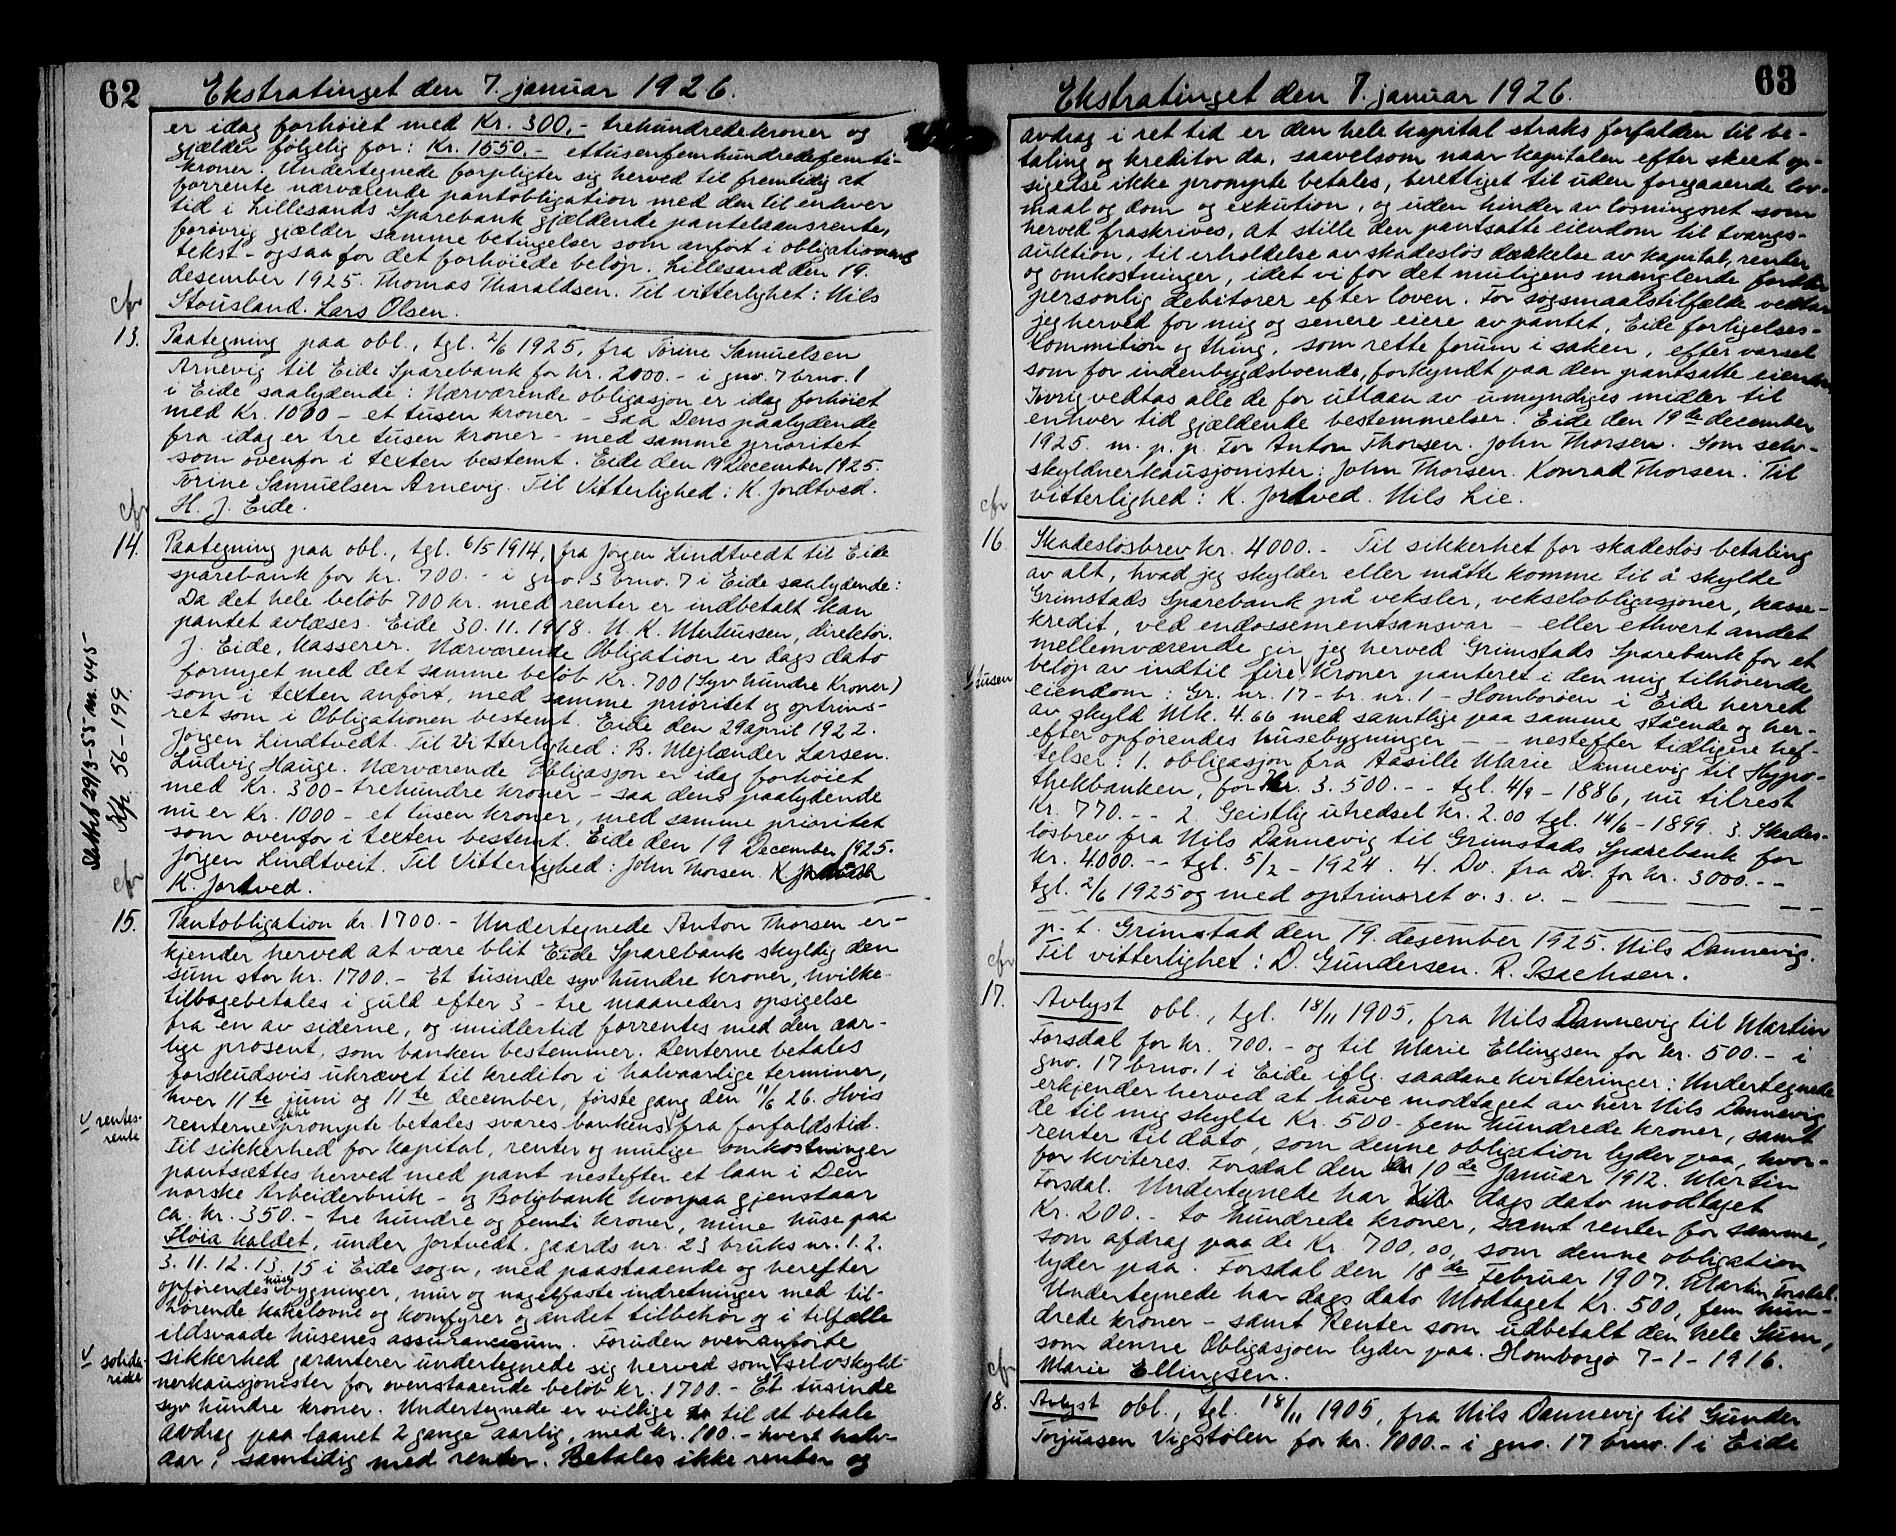 62
Ekstratinget den 7. januar 1926.
er idag forhøiet med Kr. 300,- trehundredekroner og
gjælder følgelig for: Kr. 1550.- ettusenfemhundredefemti-
kroner. Undertegnede forpligter sig herved til fremtidig at
forrente nærværende pantobligation med den til enhver
tid i Lillesands Sparebank gjældende pantelaansrente,
forøvrig gjælder samme betingelser som anført i obligationens
tekst - ogsaa for det forhøiede beløp. Lillesand den 19.
desember 1925. Thomas Tharaldsen. Til vitterlighet: Nils
Stousland. Lars Olsen.
cfr
13. Paategning paa obl., tgl. 2/6 1925, fra Torine Samuelsen
Arnevig til Eide Sparebank for kr. 2000.- i gno. 7 brno. 1
i Eide saalydende: Nærværende obligasjon er idag forhøiet
med Kr. 1000 - et tusen kroner - saa dens paalydende
fra idag er tre tusen kroner - med samme prioritet
som ovenfor i texten bestemt. Eide den 19 December 1925.
Torine Samuelsen Arnevig. Til Vitterlighed: K. Jordtved.
H. J. Eide.
cfr
14. Paategning paa obl., tgl. 6/5 1914, fra Jørgen Lindtvedt til Eide
sparebank for kr. 700.- i gno. 3 brno. 7 i Eide saalydende:
Da det hele beløb 700 kr. med renter er indbetalt kan
pantet avlæses. Eide 30.11.1918. N. K. Mertussen, direktør.
J. Eide, Kasserer. Nærværende Obligation er dags dato
fornyet med det samme beløb Kr. 700 (Syv hundre Kroner)
som i texten anført, med samme prioritet og optrins-
ret som i Obligationen bestemt. Eide den 29 april 1922.
Jørgen Lindtvedt. Til Vitterlighed: B. Mejlænder Larsen.
Ludvig Hauge. Nærværende Obligasjon er idag forhøiet
med Kr. 300 - trehundre kroner - saa dens paalydende
nu er Kr. 1000 - et tusen kroner, med samme prioritet
som ovenfor i texten bestemt. Eide den 19 December 1925.
Jørgen Lindtveit. Til Vitterlighed: John Thorsen.
K. Jortved.
Slettet 29/3-55 nr. 445
Kfr. 56-199.
cfr
15. Pantobligation kr. 1700.- Undertegnede Anton Thorsen er-
kjender herved at være blit Eide Sparebank skyldig den
sum stor kr. 1700.- Et tusinde syv hundre kroner, hvilke
tilbagebetales i guld efter 3 - tre maaneders opsigelse
fra en av siderne, og imidlertid forrentes med den aar-
lige prosent, som banken bestemmer. Renterne betales
forskudsvis ukrævet til kreditor i halvaarlige terminer,
hver 11te juni og 11te december, første gang den 11/6 26. Hvis
renterne ikke prompte betales svares bankens V fra forfaldstid.
V rentes-
rente
Til sikkerhed for kapital, renter og mulige omkostninger
pantsættes herved med pant nestefter et laan i Den
norske Arbeiderbruk - og Boligbank hvorpaa gjenstaar
ca. kr. 350.- tre hundre og femti kroner, mine huse paa
Fløia kaldet, under Jortvedt. gaards nr. 23 bruks nr. 1. 2.
3. 11. 12. 13. 15 i Eide sogn, med paastaaende og herefter
opførendes husebygninger, mur og nagelfaste indretninger med til-
hørende kakelovne og komfyrer og andet tilbehør og i tilfælle
ildsvaade husenes assurancesum. Foruden ovenanførte
sikkerhed garanterer undertegnede sig herved som V selvskyld-
V solida-
riske
nerkausjonister for ovenstaaende beløb kr. 1700.- Et tusinde
syv hundre kroner. Undertegnede er villige til at betale
avdrag paa laanet 2 gange aarlig, med kr. 100.- hvert halv-
aar, samtidig med renter. Betales ikke renter og
63
Ekstratinget den 7. januar 1926.
avdrag i ret tid er den hele kapital straks forfalden til be-
taling og kreditor da, saavelsom naar kapitalen efter skeet op-
sigelse ikke prompte betales, berettiget til uden foregaaende lov-
maal og dom og exkution, og uden hinder av løsningsret som
herved fraskrives, at stille den pantsatte eiendom til tvangs-
auktion, til erholdelse av skadesløs dækkelse av kapital, renter
og omkostninger, idet vi for det muligens manglende forblir
personlig debitorer efter loven. For søgsmaalstilfælde vedtar
jeg herved for mig og senere eiere av pantet, Eide forligelses-
kommition og thing, som rette forum i saken, efter varsel
som for indenbygdsboende, forkyndt paa den pantsatte eiendom
Iøvrig vedtas alle de for utlaan av umyndiges midler til
enhver tid gjældende bestemmelser. Eide den 19de december
1925. m. p. p. For Anton Thorsen. John Thorsen. Som selv-
skyldnerkausjonister: John Thorsen. Konrad Thorsen. Til
vitterlighed: K. Jordtved. Nils Lie.
cfr
16. Skadesløsbrev kr. 4000.- Til sikkerhet for skadesløs betaling
av alt, hvad jeg skylder eller måtte komme til å skylde
Grimstads Sparebank på veksler, vekselobligasjoner, kasse-
kredit, ved endossementsansvar - eller ethvert andet
mellemværende gir jeg herved Grimstads Sparebank for et
beløp av indtil fire V Kroner panteret i den mig tilhørende
V tusen
eiendom: Gr. nr. 17 - br. nr. 1 - Homborøen i Eide herred
av skyld Mk. 4.66 med samtlige paa samme stående og her-
efter opførendes husebygninger - - nestefter tidligere hef-
telser: 1. obligasjon fra Aasille Marie Dannevig til Hypo-
thekbanken, for kr. 3.500.- - tgl. 4/9 - 1886, nu tilrest
Kr. 770.- - 2. Geistlig utredsel Kr. 2.00 tgl. 14/6 - 1899. 3. Skades-
løsbrev fra Nils Dannevig til Grimstads Sparebank for
Kr. 4000.- - tgl. 5/2 - 1924. 4. Do. fra Do. for kr. 3000.- -
tgl. 2/6 1925 og med optrinsret o. s. v. -
p. t. Grimstad den 19. desember 1925. Nils Dannevig.
Til vitterlighet: D. Gundersen. R. Isachsen.
cfr
17. Avlyst obl., tgl. 18/11 1905, fra Nils Dannevig til Martin
Forsdal for kr. 700.- og til Marie Ellingsen for kr. 500.- i
gno. 17 brno. 1 i Eide iflg. saadane kvitteringer: Undertegnede
erkjender herved at have modtaget av herr Nils Dannevig
de til mig skylte Kr. 500 - fem hundrede kroner, samt
renter til dato, som denne obligation lyder paa, hvor-
for kviteres. Forsdal den 10de Januar 1912. Martin
Forsdal. Undertegnede har dags dato modtaget
Kr. 200.- to hundrede kroner, samt renter for samme,
som afdrag paa de Kr. 700,00, som denne obligation
lyder paa. Forsdal den 18de Februar 1907. Martin Forsdal.
Undertegnede har dags dato Modtaget Kr. 500, fem hun-
drede kroner - samt Renter som udbetalt den hele Sum,
som denne Obligasjoen lyder paa. Homborgø 7-1-1916.
Marie Ellingsen.
cfr
18. Avlyst obl., tgl. 18/11 1905, fra Nils Dannevig til Gunder
Torjussen Vigstølen for kr. 1000.- i gno. 17 brno. 1 i Eide